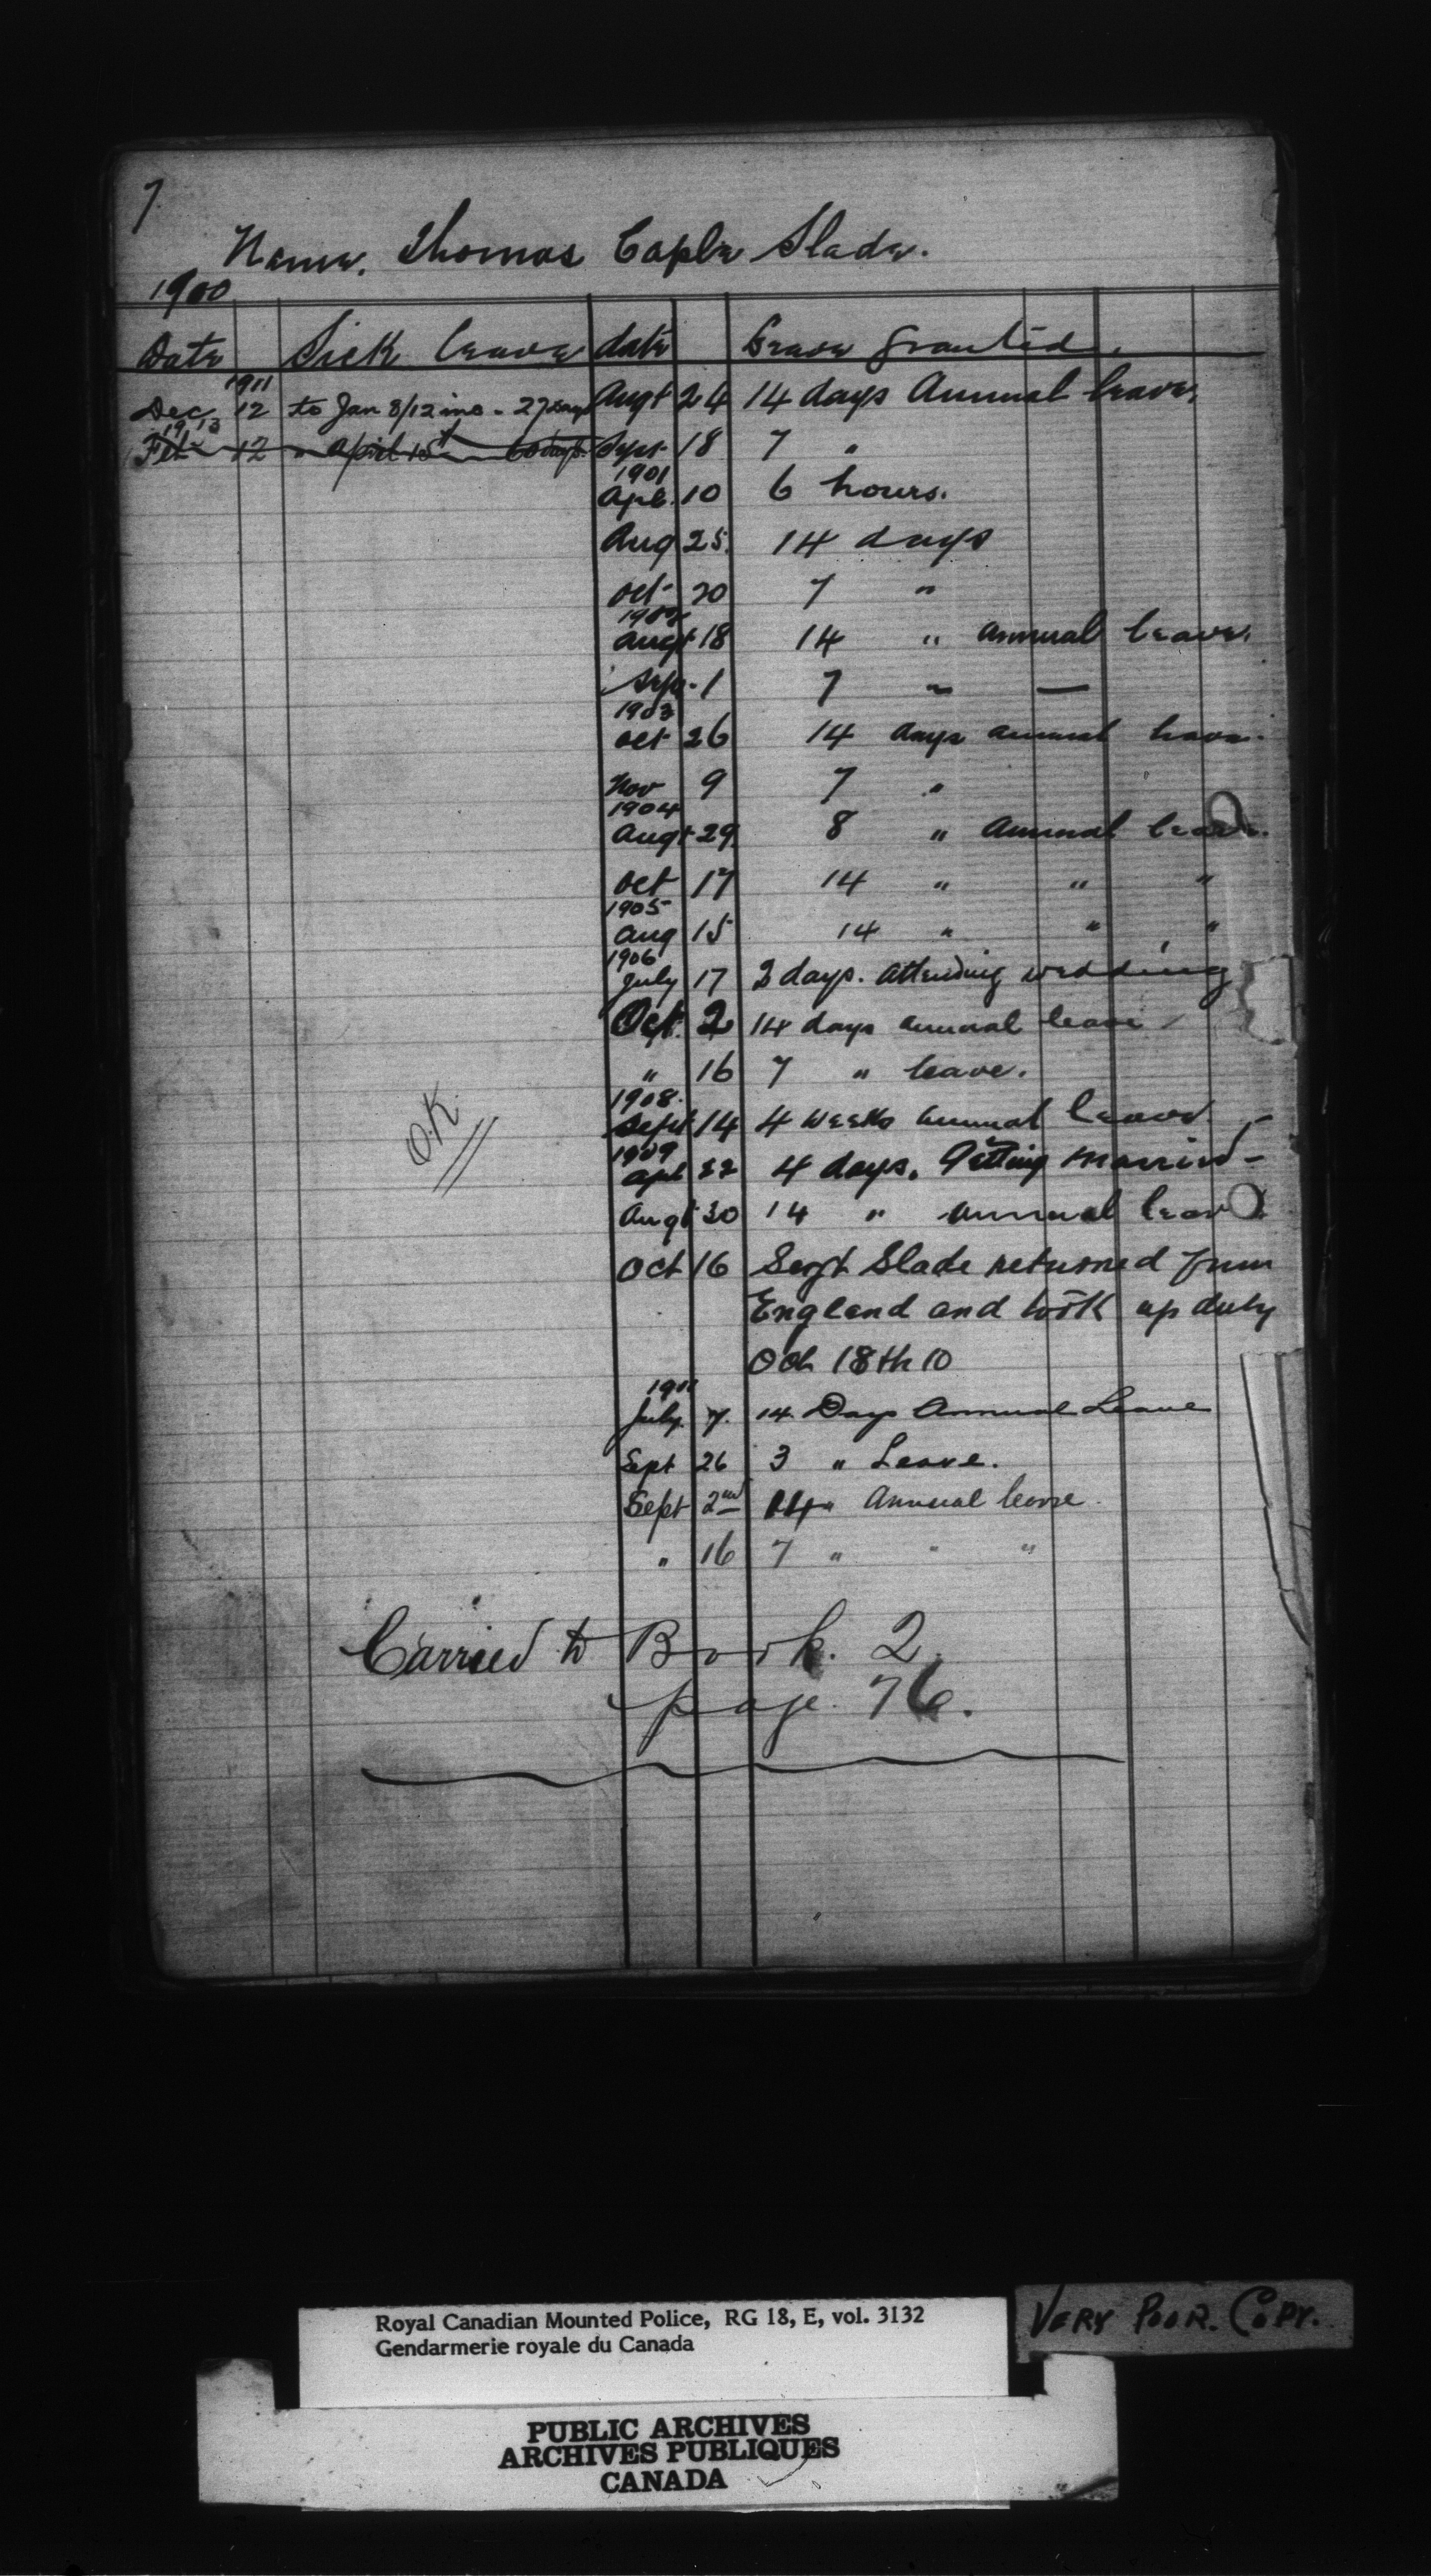 7
Name. Thomas Caple Slade.
1900
Date Sick leave date Leave granted.
1911
Dec 12 to Jan 8/12 inc - 27 days Augt 24 14 days Annual leave.
1913
Feb 12 " April 15th 60 days. Sept 18 7 "
1901
Apl. 10 6 hours.
Aug 25. 14 days
Oct 20 7 "
1902
Augt 18 14 " annual leave.
Sep. 1 7 " —
1903
Oct 26 14 days annual leave.
Nov 9 7 "
1904
Augt 29. 8 " Annual leave.
Oct 17 14 " " "
1905
Aug 15 14 " " "
1906
July 17 2 days. attending wedding
Oct. 2 14 days annual leave
" 16 7 " leave.
O.K.
1908.
Sept 14 4 weeks annual leave.
1909
Apl 22 4 days. Getting married -
Augt 30 14 " annual leave
Oct 16 Sergt Slade returned from
England and took up duty
Oct 18th 10
1911
July. 7. 14 Days Annual Leave
Sept 26 3 " Leave.
Sept 2nd 14 " Annual leave.
" 16 7 " " "
Carried to Book. 2.
page. 76.
Royal Canadian Mounted Police, RG 18, E, vol. 3132
Gendarmerie royale du Canada
VERY POOR. COPY.
PUBLIC ARCHIVES
ARCHIVES PUBLIQUES
CANADA